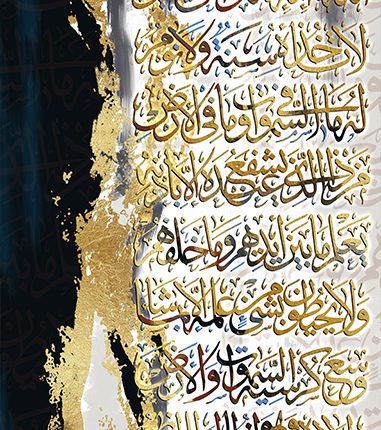 لا تأخذه سنة ولا نوم
له ما في السموات وما في الأرض
من ذا الذي يشفع عنده إلا بإذنه
يعلم ما بين أيديهم وما خلفهم
ولا يحيطون بشيء من علمه إلا بما شاء
وسع كرسيه السموات والأرض